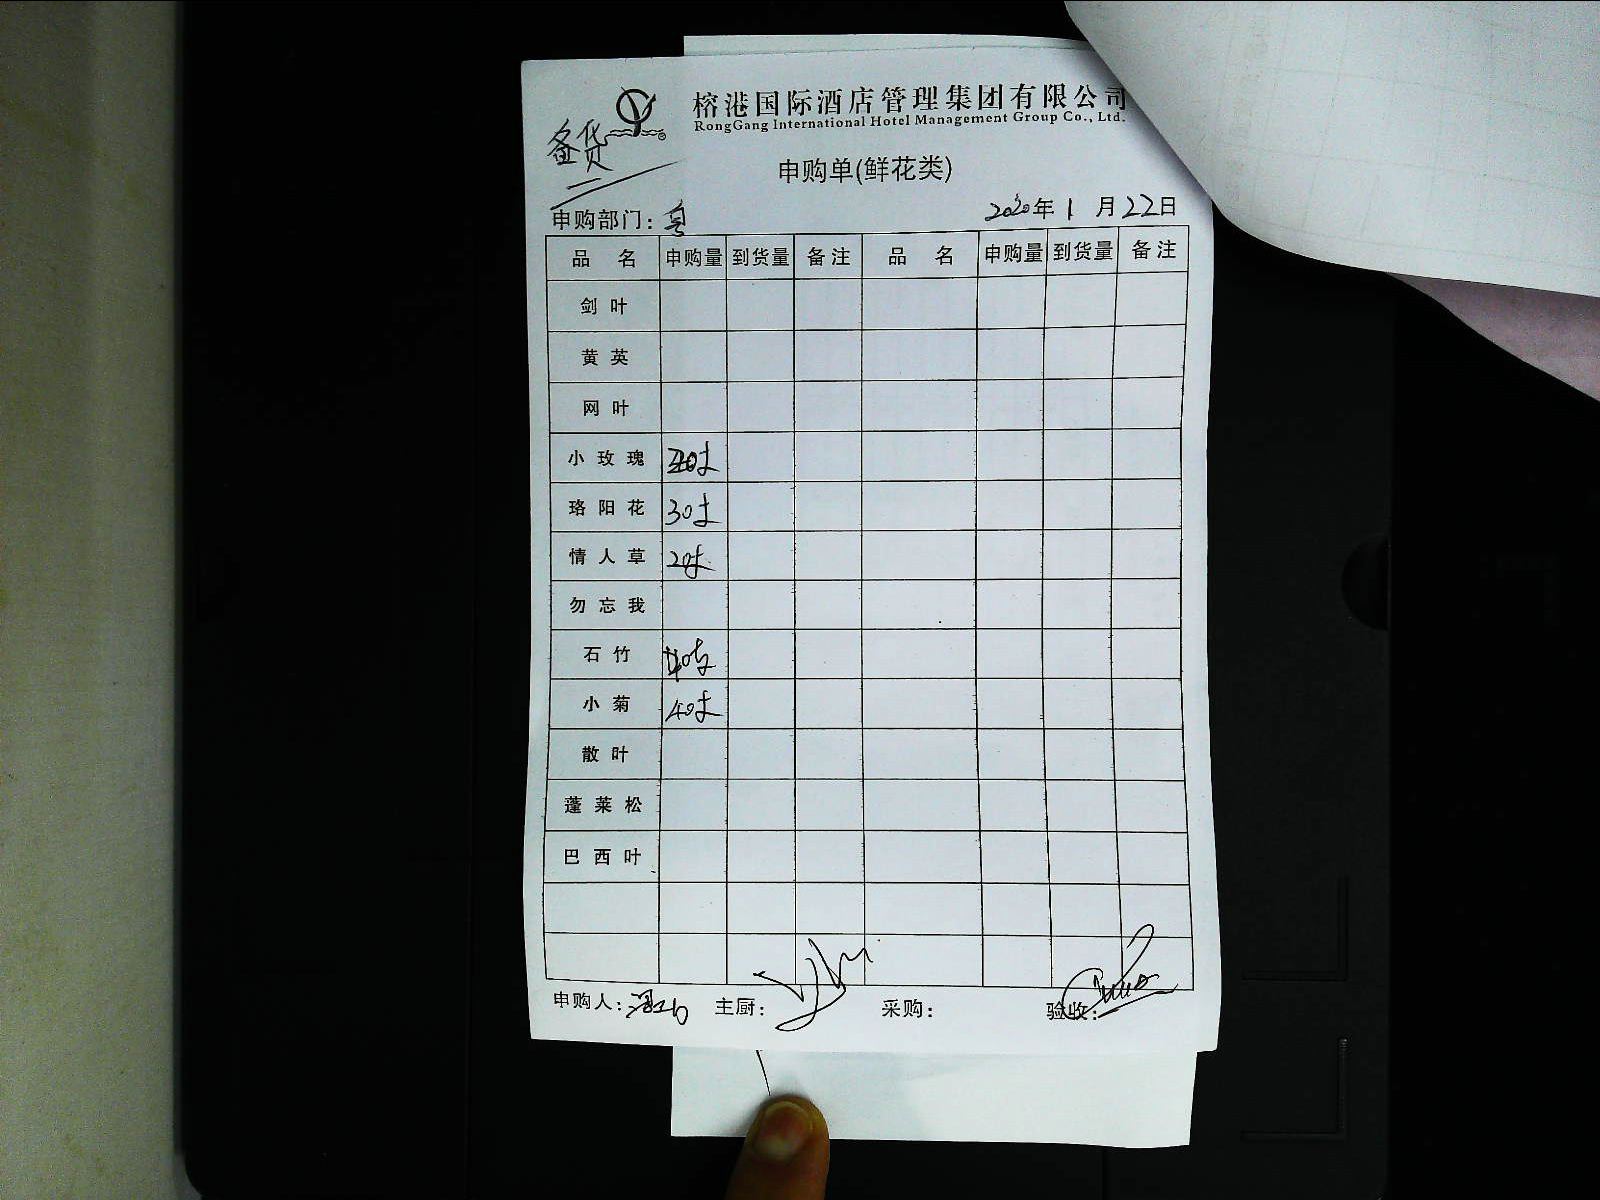 榕港国际酒店管理集团有限公司
RongGang International Hotel Management Group Co., Ltd.
备货
申购单(鲜花类)
申购部门: 粤 2020年1月22日
品名 申购量 到货量 备注 品名 申购量 到货量 备注
剑叶
黄英
网叶
小玫瑰
珞阳花 30支
情人草 20支
勿忘我
石竹 40支
小菊 40支
散叶
蓬莱松
巴西叶
申购人: 主厨: 采购: 验收: